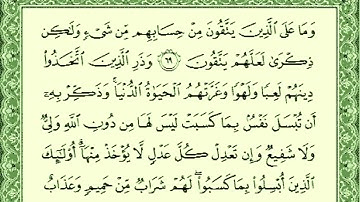 وَمَا عَلَى ٱلَّذِينَ يَتَّقُونَ مِنْ حِسَابِهِم مِّن شَىْءٍ وَلَٰكِن
ذِكْرَىٰ لَعَلَّهُمْ يَتَّقُونَ ٦٩ وَذَرِ ٱلَّذِينَ ٱتَّخَذُوا۟
دِينَهُمْ لَعِبًا وَلَهْوًا وَغَرَّتْهُمُ ٱلْحَيَوٰةُ ٱلدُّنْيَا ۚ وَذَكِّرْ بِهِۦٓ
أَن تُبْسَلَ نَفْسٌۢ بِمَا كَسَبَتْ لَيْسَ لَهَا مِن دُونِ ٱللَّهِ وَلِىٌّ
وَلَا شَفِيعٌ وَإِن تَعْدِلْ كُلَّ عَدْلٍ لَّا يُؤْخَذْ مِنْهَآ ۗ أُو۟لَٰٓئِكَ
ٱلَّذِينَ أُبْسِلُوا۟ بِمَا كَسَبُوا۟ ۖ لَهُمْ شَرَابٌ مِّنْ حَمِيمٍ وَعَذَابٌ